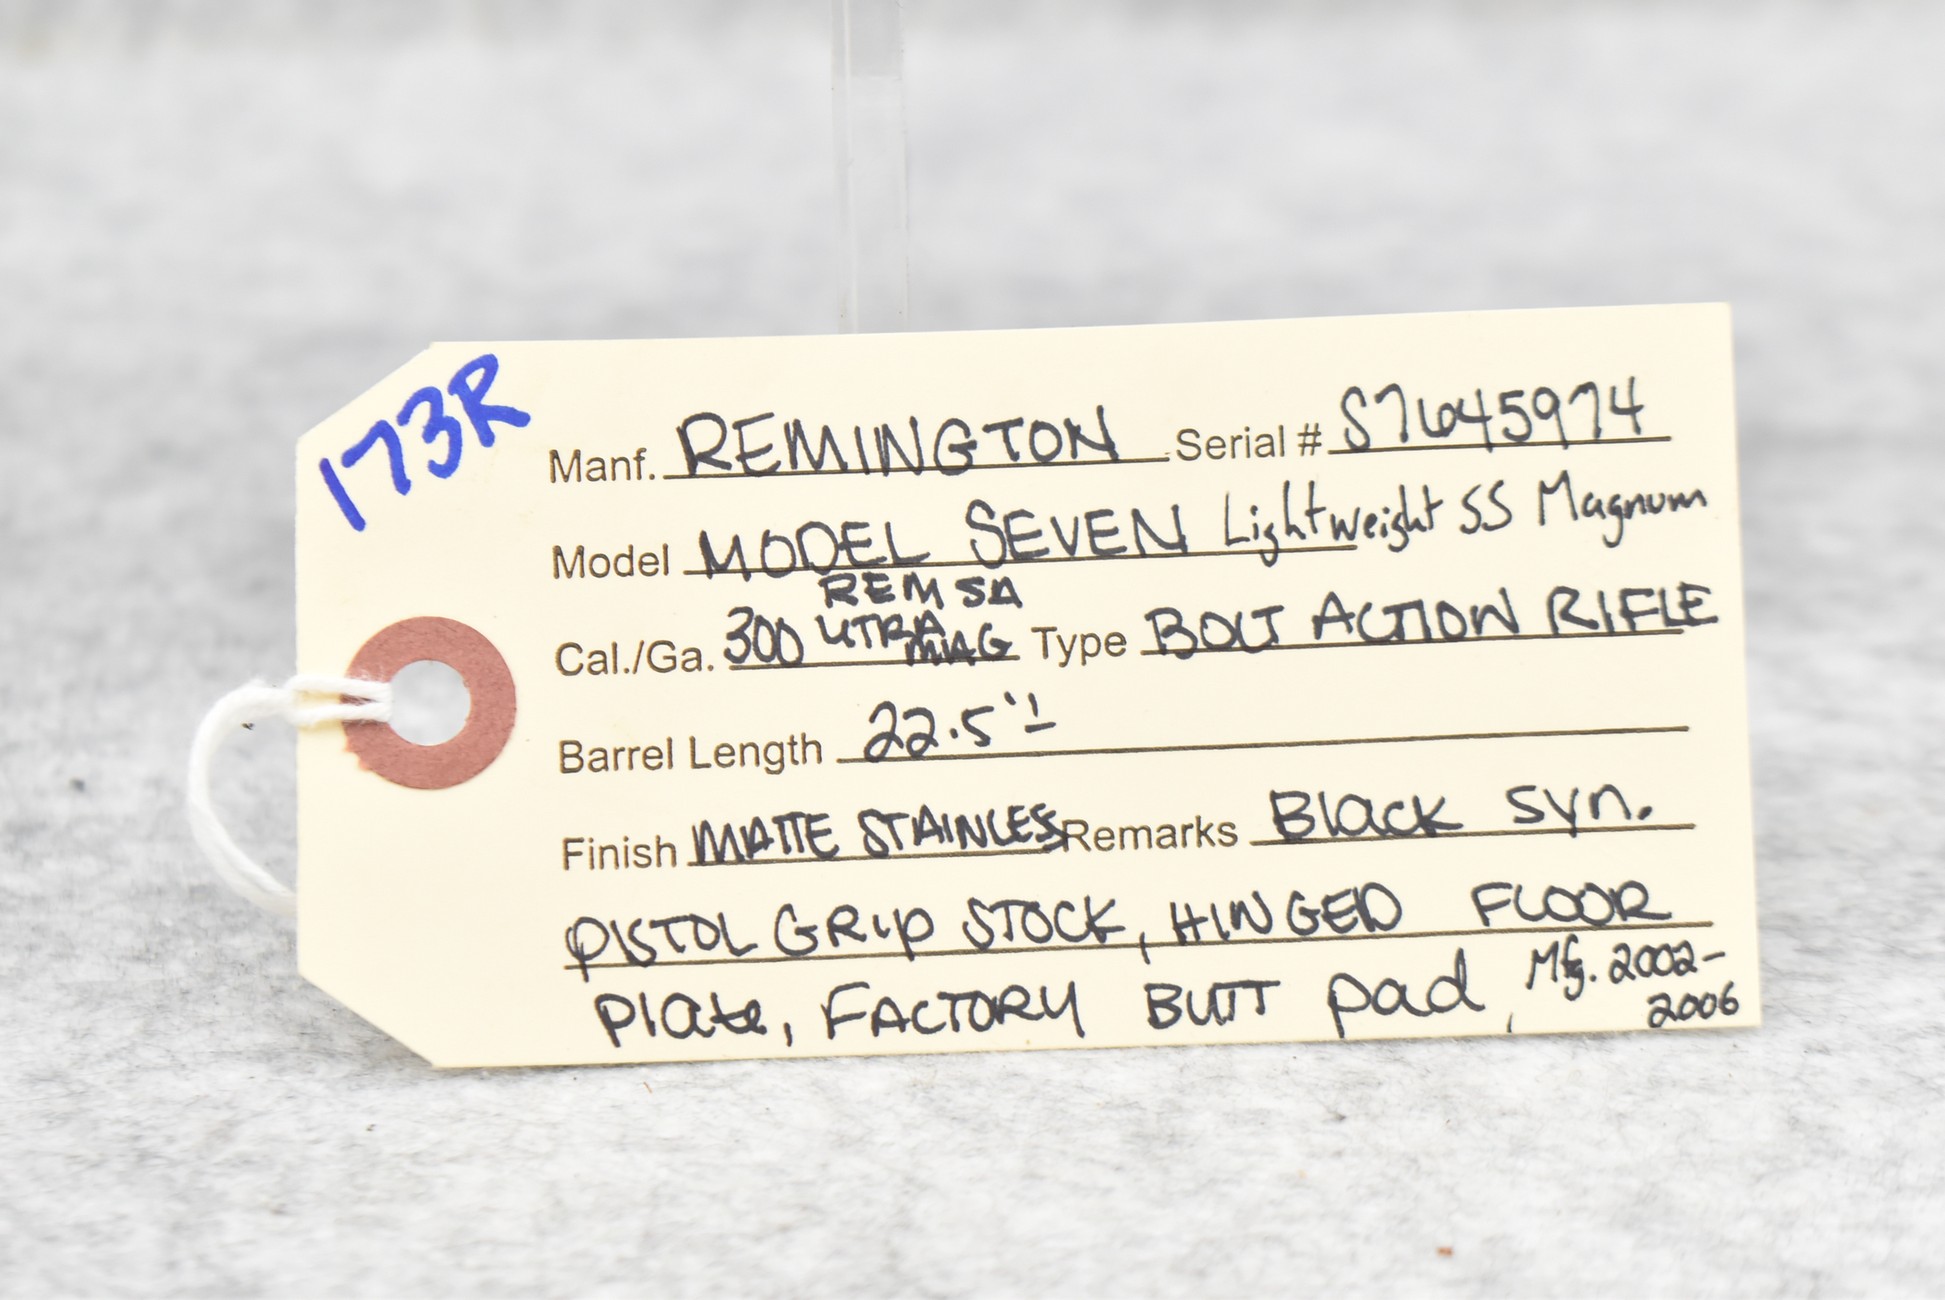 173R
Manf. REMINGTON Serial # S7645974
Model MODEL SEVEN Lightweight SS Magnum
REM SA
Cal./Ga. 300 UTRA MAG Type BOLT ACTION RIFLE
Barrel Length 22.5"
Finish MATTE STAINLES Remarks Black syn.
PISTOL GRIP STOCK, HINGED FLOOR
Plate, FACTORY BUTT pad, Mfg. 2002-
2006